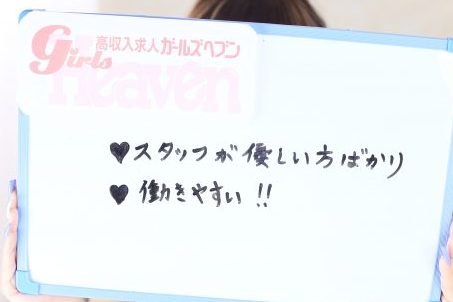 高収入求人ガールズヘブン
Girls
Heaven
♥スタッフが優しい方ばかり
♥働きやすい!!